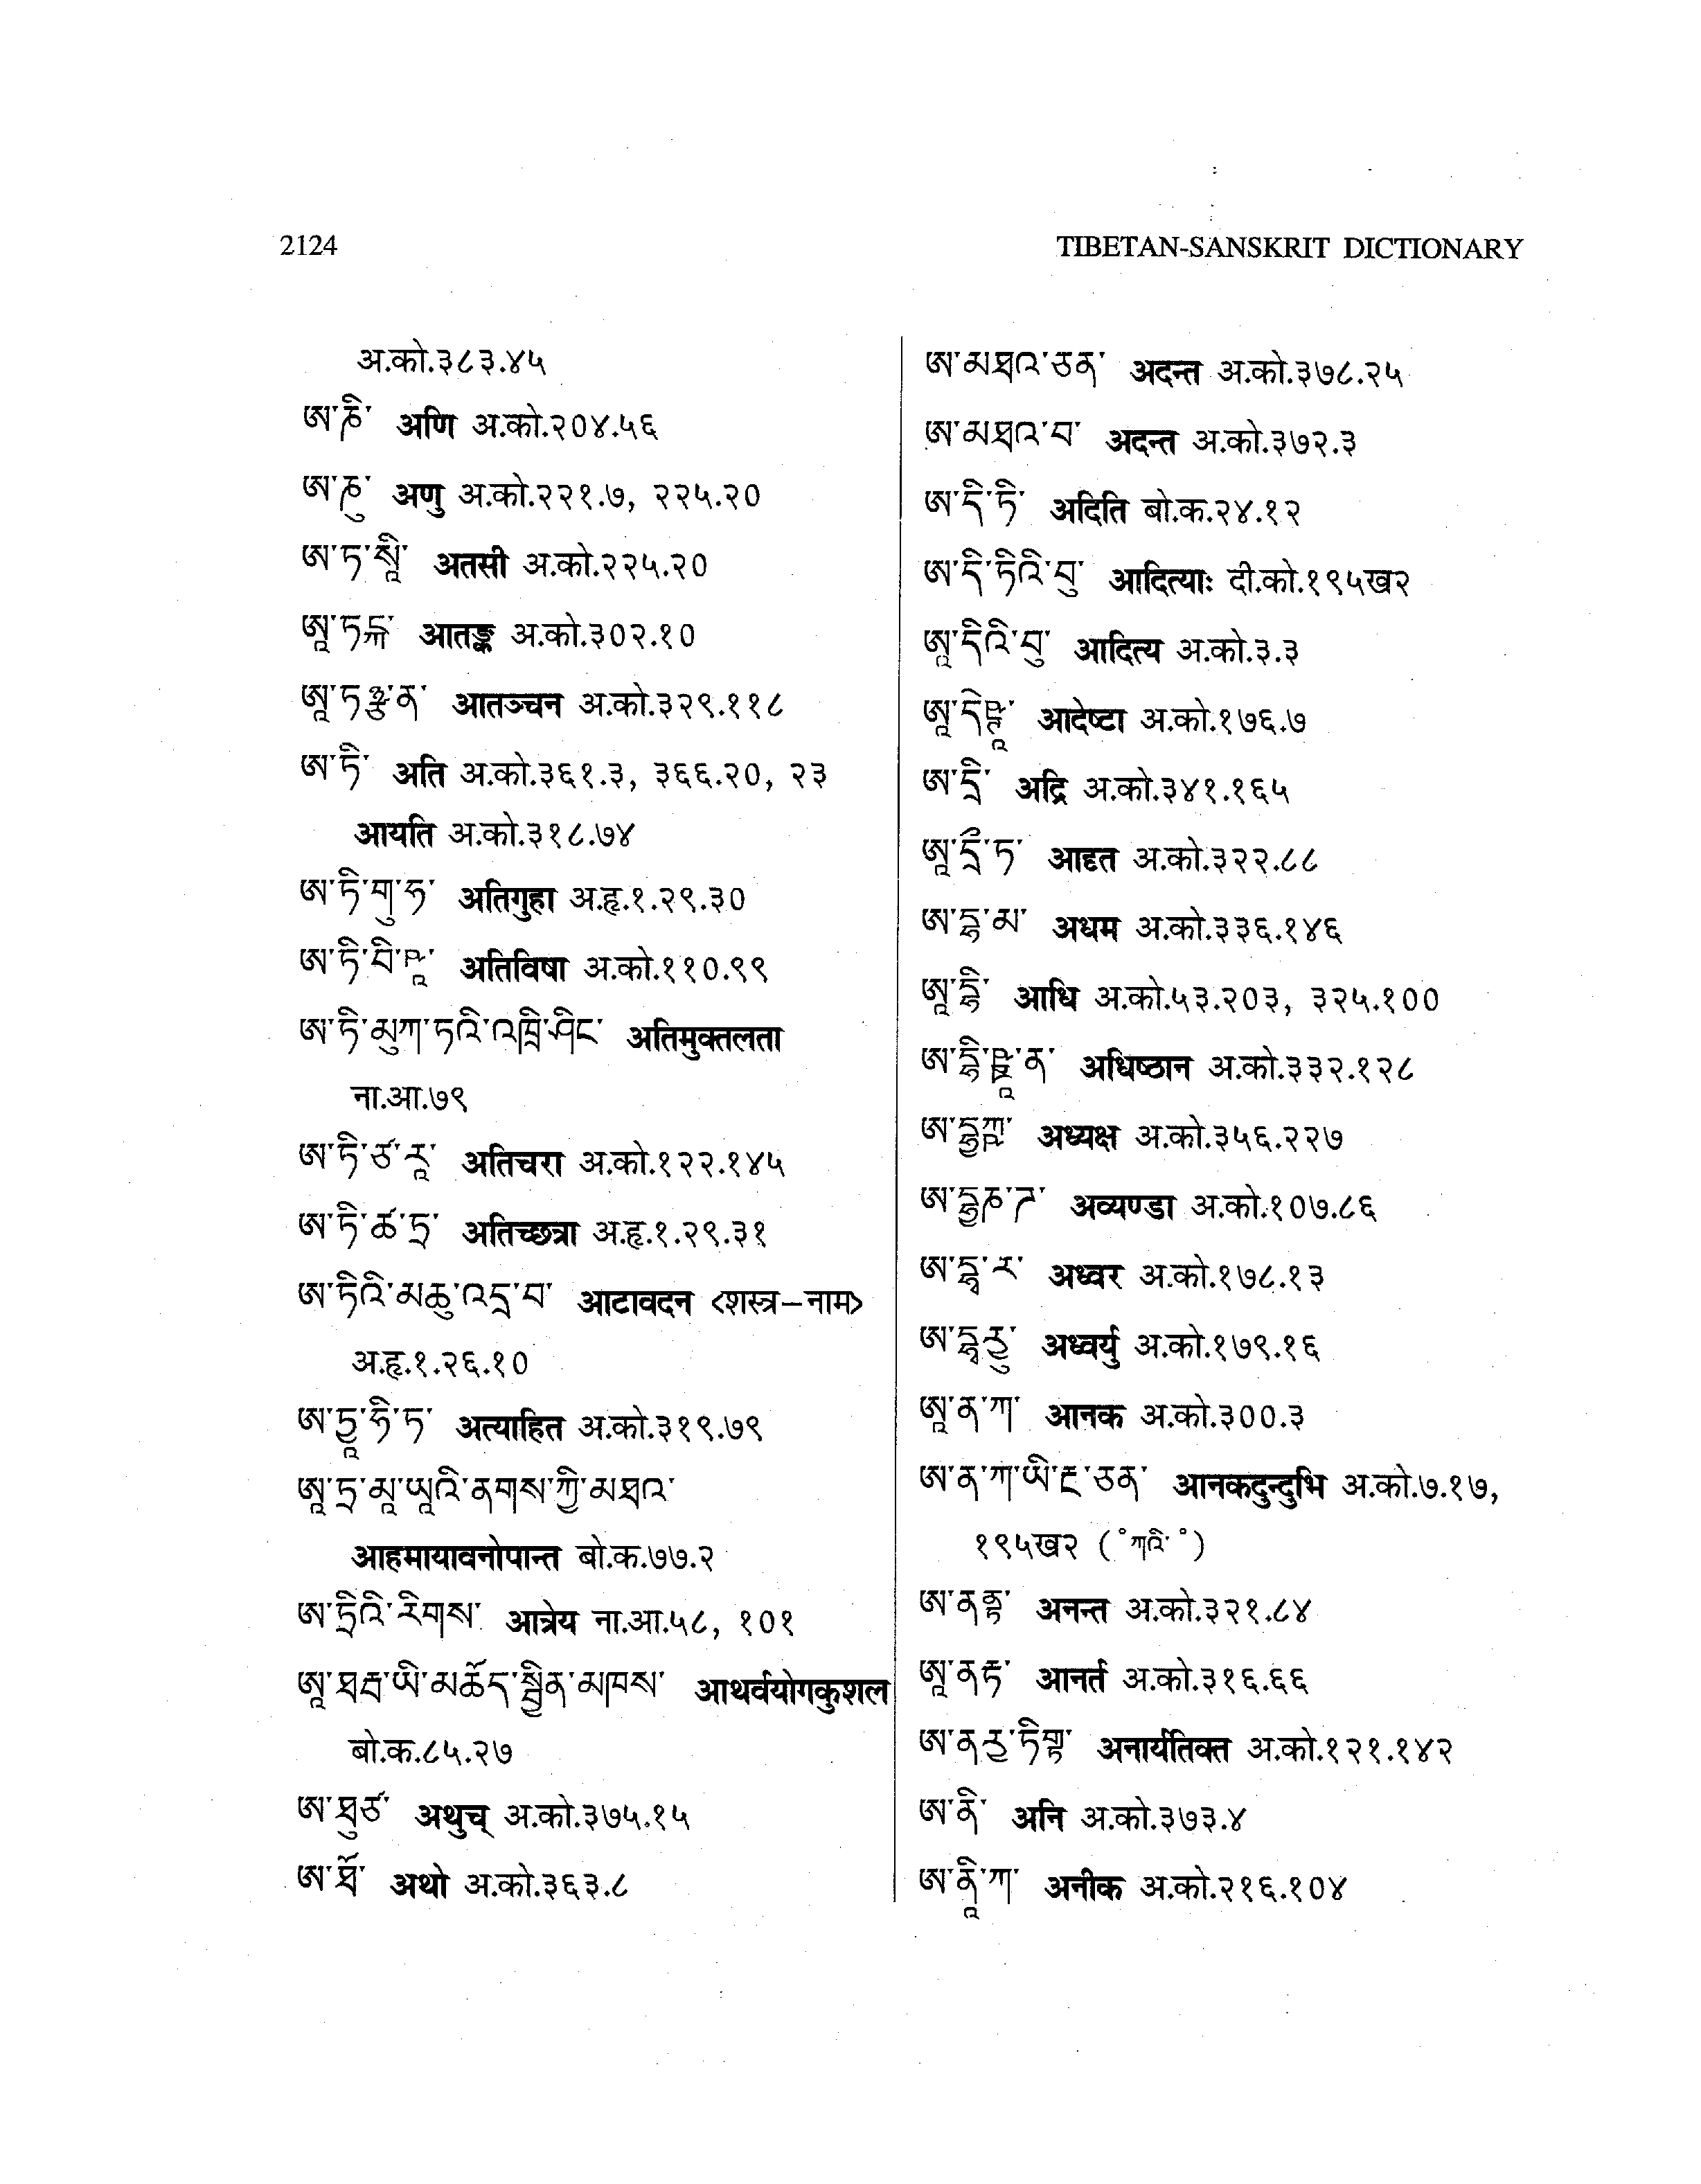 2124
TIBETAN-SANSKRIT DICTIONARY
अ.को.३८३.४५
ཨ་ཎི་ अणि अ.को.२०४.५६
ཨ་ཎུ་ अणु अ.को.२२१.७, २२५.२०
ཨ་ཏ་སཱི་ अतसी अ.को.२२५.२०
ཨཱ་ཏངྐ་ आतङ्क अ.को.३०२.१०
ཨཱ་ཏཉྩ་ན་ आतञ्चन अ.को.३२९.११८
ཨ་ཏི་ अति अ.को.३६१.३, ३६६.२०, २३
आयति अ.को.३१८.७४
ཨ་ཏི་གུ་ཧ་ अतिगुहा अ.हृ.१.२९.३०
ཨ་ཏི་བི་ཥཱ་ अतिविषा अ.को.११०.९९
ཨ་ཏི་མུཀ་ཏའི་འཁྲི་ཤིང་ अतिमुक्तलता
ना.आ.७९
ཨ་ཏི་ཙ་རཱ་ अतिचरा अ.को.१२२.१४५
ཨ་ཏི་ཚ་ཏྲ་ अतिच्छत्रा अ.हृ.१.२९.३१
ཨ་ཏིའི་མཆུ་འདྲ་བ་ आटावदन <शस्त्र–नाम>
अ.हृ.१.२६.१०
ཨ་ཏྱཱ་ཧི་ཏ་ अत्याहित अ.को.३१९.७९
ཨཱ་ཏྲ་མཱ་ཡཱའི་ནགས་ཀྱི་མཐའ་
आहमायावनोपान्त बो.क.७७.२
ཨ་ཏྲིའི་རིགས་ आत्रेय ना.आ.५८, १०१
ཨཱ་ཐརྦ་ཡི་མཆོད་སྦྱིན་མཁས་ आथर्वयोगकुशल
बो.क.८५.२७
ཨ་ཐུཙ་ अथुच् अ.को.३७५.१५
ཨ་ཐོ་ अथो अ.को.३६३.८
ཨ་མཐའ་ཅན་ अदन्त अ.को.३७८.२५
ཨ་མཐའ་བ་ अदन्त अ.को.३७२.३
ཨ་དི་ཏི་ अदिति बो.क.२४.१२
ཨ་དི་ཏིའི་བུ་ आदित्याः दी.को.१९५ख२
ཨཱ་དིའི་བུ་ आदित्य अ.को.३.३
ཨཱ་དེཥྚཱ་ आदेष्टा अ.को.१७६.७
ཨ་དྲི་ अद्रि अ.को.३४१.१६५
ཨཱ་དྲྀ་ཏ་ आदृत अ.को.३२२.८८
ཨ་དྷ་མ་ अधम अ.को.३३६.१४६
ཨཱ་དྷི་ आधि अ.को.५३.२०३, ३२५.१००
ཨ་དྷི་ཥྛཱ་ན་ अधिष्ठान अ.को.३३२.१२८
ཨ་དྷྱཀྵ་ अध्यक्ष अ.को.३५६.२२७
ཨ་དྷྱཎ་ཌ་ अव्यण्डा अ.को.१०७.८६
ཨ་དྷྭ་ར་ अध्वर अ.को.१७८.१३
ཨ་དྷྭརྱུ་ अध्वर्यु अ.को.१७९.१६
ཨཱ་ན་ཀ་ आनक अ.को.३००.३
ཨ་ན་ཀ་ཡི་རྔ་ཅན་ आनकदुन्दुभि अ.को.७.१७,
१९५ख२ (˚ཀའི་˚)
ཨ་ནནྟ་ अनन्त अ.को.३२१.८४
ཨཱ་ནརྟ་ आनर्त अ.को.३१६.६६
ཨ་ནརྱ་ཏིཀྟ་ अनार्यतिक्त अ.को.१२१.१४२
ཨ་ནི་ अनि अ.को.३७३.४
ཨ་ནཱི་ཀ་ अनीक अ.को.२१६.१०४